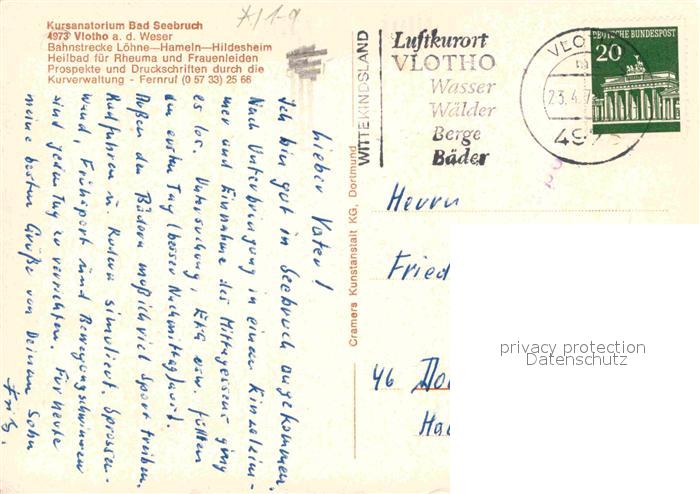 Kursanatorium Bad Seebruch
4973 Vlotho a. d. Weser
Bahnstrecke Löhne—Hameln—Hildesheim
Heilbad für Rheuma und Frauenleiden
Prospekte und Druckschriften durch die
Kurverwaltung - Fernruf (0 57 33) 25 66
Lieber Vater!
Ich bin gut in Seebruch angekommen.
Nach Unterbringung in einem Einzelzim-
mer und Einnahme des Mittagessens ging
es los. Untersuchung, EKG usw. füllten
den ersten Tag (besser Nachmittag) aus.
Außer den Bädern muß ich viel Sport treiben.
Radfahren u. Rudern simuliert. Sprossen-
wand, Frühsport und Bewegungsschwimmen
sind jeden Tag zu verrichten. Für heute
meine besten Grüße von Deinem Sohn
Fritz.
Cramers Kunstanstalt KG, Dortmund
WITTEKINDSLAND
Luftkurort
VLOTHO
Wasser
Wälder
Berge
Bäder
VLO
23.4.7
497
DEUTSCHE BUNDESPOST
20
Herrn
Fried
46 Do
Ha
privacy protection
Datenschutz